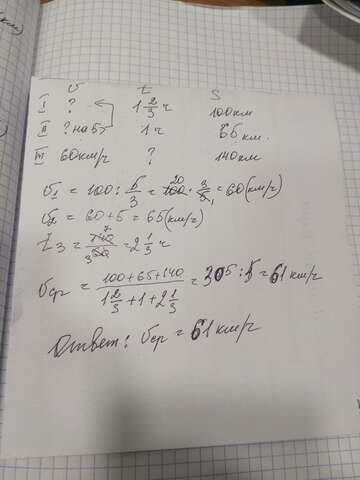 v t s
I ? 1 2/3 ч 100км
II ? на 5б 1ч 65 км.
III 60км/ч ? 140км
v₁ = 100 : 5/3 = 100 20 · 3/5 1 = 60(км/ч)
v₂ = 60+5 = 65(км/ч)
t₃ = 140 7/60 3 = 2 1/3 ч
vср = 100+65+140 / 1 2/3 + 1 + 2 1/3 = 305 : 5 = 61 км/ч
Ответ: vср = 61 км/ч